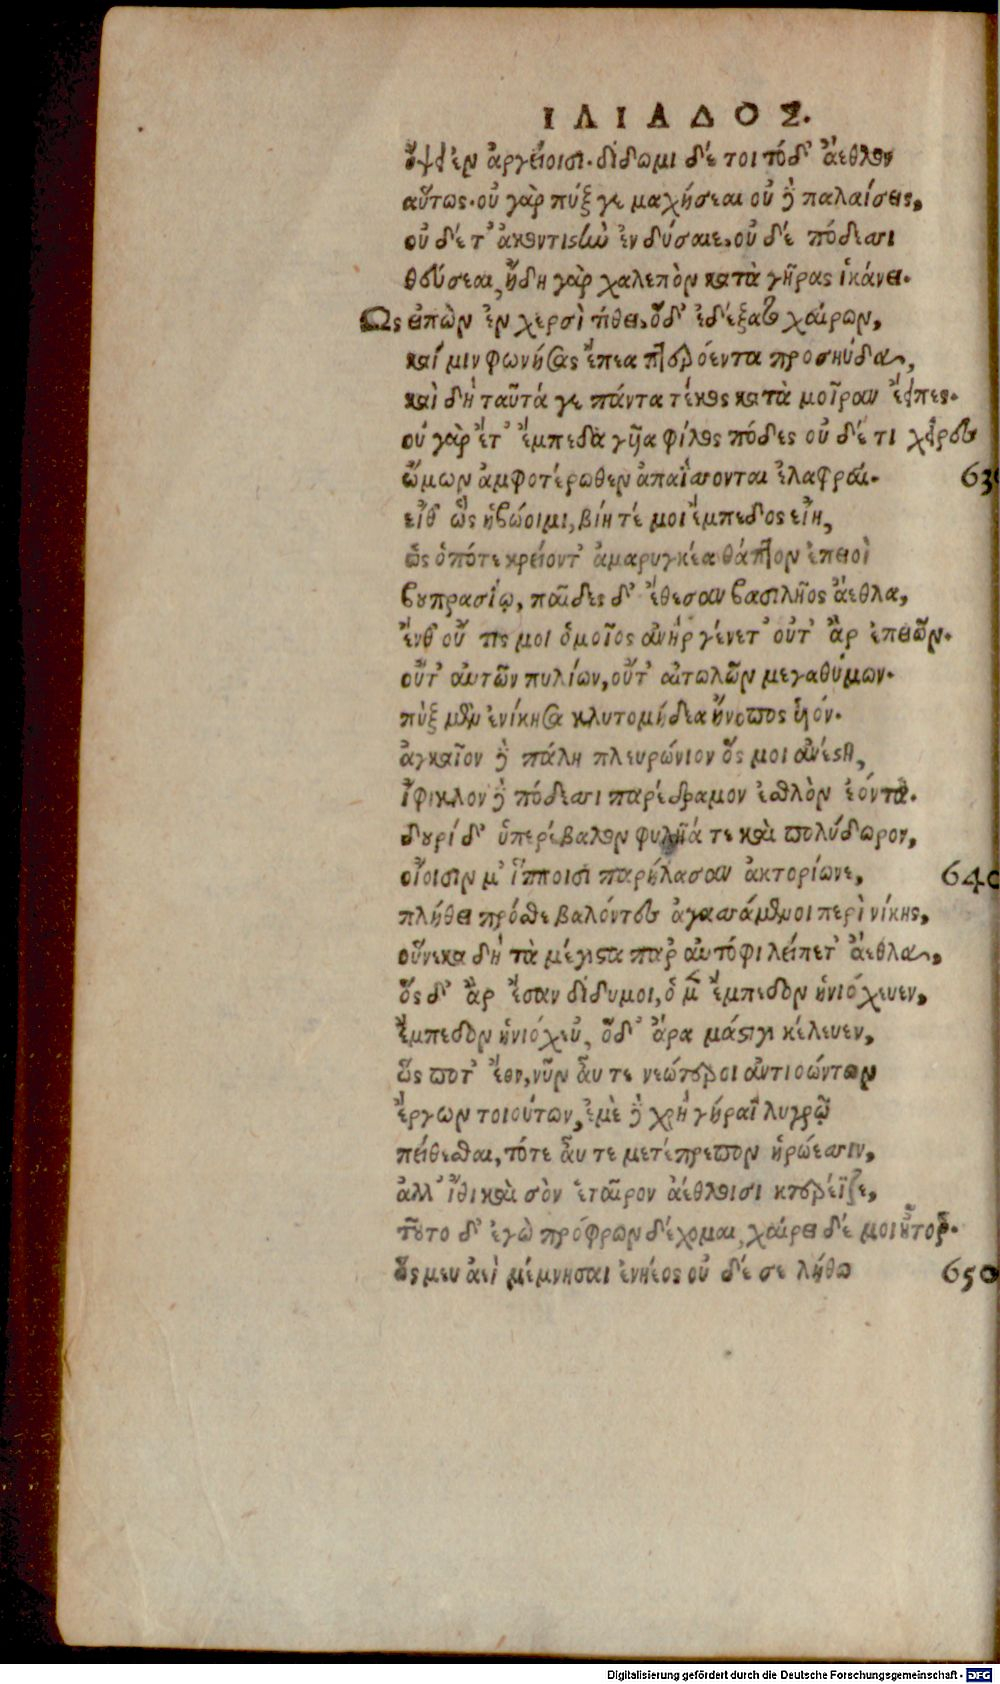 ΙΛΙΑΔΟΣ.
ὄψε' ἐν ἀργείοισι. δίδωμι δέ τοι τόδ' ἄεθλον
αὔτως. οὐ γὰρ πύξ γε μαχήσεαι οὐ δὲ παλαίσεις,
οὐ δέ τ' ἀκοντιστὺν ἐνδύσεαι, οὐ δέ πόδεσσι
θεύσεαι, ἤδη γὰρ χαλεπὸν κατὰ γῆρας ἱκάνει.
Ὣς εἰπὼν ἐν χερσὶ τίθει, ὅδ' ἐδέξατο χαίρων,
καί μιν φωνήσας ἔπεα πτερόεντα προσηύδα,
καὶ δὴ ταῦτά γε πάντα τέκος κατὰ μοῖραν ἔειπες.
οὐ γὰρ ἔτ' ἔμπεδα γυῖα φίλος πόδες οὐ δέ τι χεῖρες
ὤμων ἀμφοτέρωθεν ἀπαΐσσονται ἐλαφραί. 630
εἴθ' ὣς ἡβώοιμι, βίη τέ μοι ἔμπεδος εἴη,
ὡς ὁπότε κρείοντ' ἀμαρυγκέα θάπτον ἐπειοὶ
βουπρασίῳ, παῖδες δ' ἔθεσαν βασιλῆος ἄεθλα,
ἔνθ' οὔ τις μοι ὁμοῖος ἀνὴρ γένετ' οὔτ' ἂρ ἐπειῶν.
οὔτ' αὐτῶν πυλίων, οὔτ' αἰτωλῶν μεγαθύμων.
πὺξ μὲν ἐνίκησα κλυτομήδεα ἤνοπος υἱόν.
ἀγκαῖον δὲ πάλη πλευρώνιον ὅς μοι ἀνέστη,
ἴφικλον δὲ πόδεσσι παρέδραμον ἐσθλὸν ἐόντα.
δουρὶ δ' ὑπερέβαλον φυλῆά τε καὶ πολύδωρον,
οἴοισιν μ' ἵπποισι παρήλασαν ἀκτορίωνε, 640
πλήθει πρόσθε βαλόντες ἀγασσάμενοι περὶ νίκης,
οὕνεκα δὴ τὰ μέγιστα παρ' αὐτόφι λείπετ' ἄεθλα,
ὃς δ' ἂρ ἔσαν δίδυμοι, ὁ μὲν ἔμπεδον ἡνιόχευεν,
ἔμπεδον ἡνιόχευ', ὅδ' ἄρα μάστιγι κέλευεν,
ὥς ποτ' ἔον, νῦν αὖ τε νεώτεροι ἀντιοώντων
ἔργων τοιούτων, ἐμὲ δὲ χρὴ γήραϊ λυγρῷ
πείθεσθαι, τότε αὖ τε μετέπρεπον ἡρώεσσιν,
ἀλλ' ἴθι καὶ σὸν ἑταῖρον ἀέθλοισι κτερέϊζε,
τοῦτο δ' ἐγὼ πρόφρων δέχομαι, χαίρει δέ μοι ἦτορ.
ὥς μευ ἀεὶ μέμνησαι ἐνηέος οὐ δέ σε λήθω 650
Digitalisierung gefördert durch die Deutsche Forschungsgemeinschaft - DFG